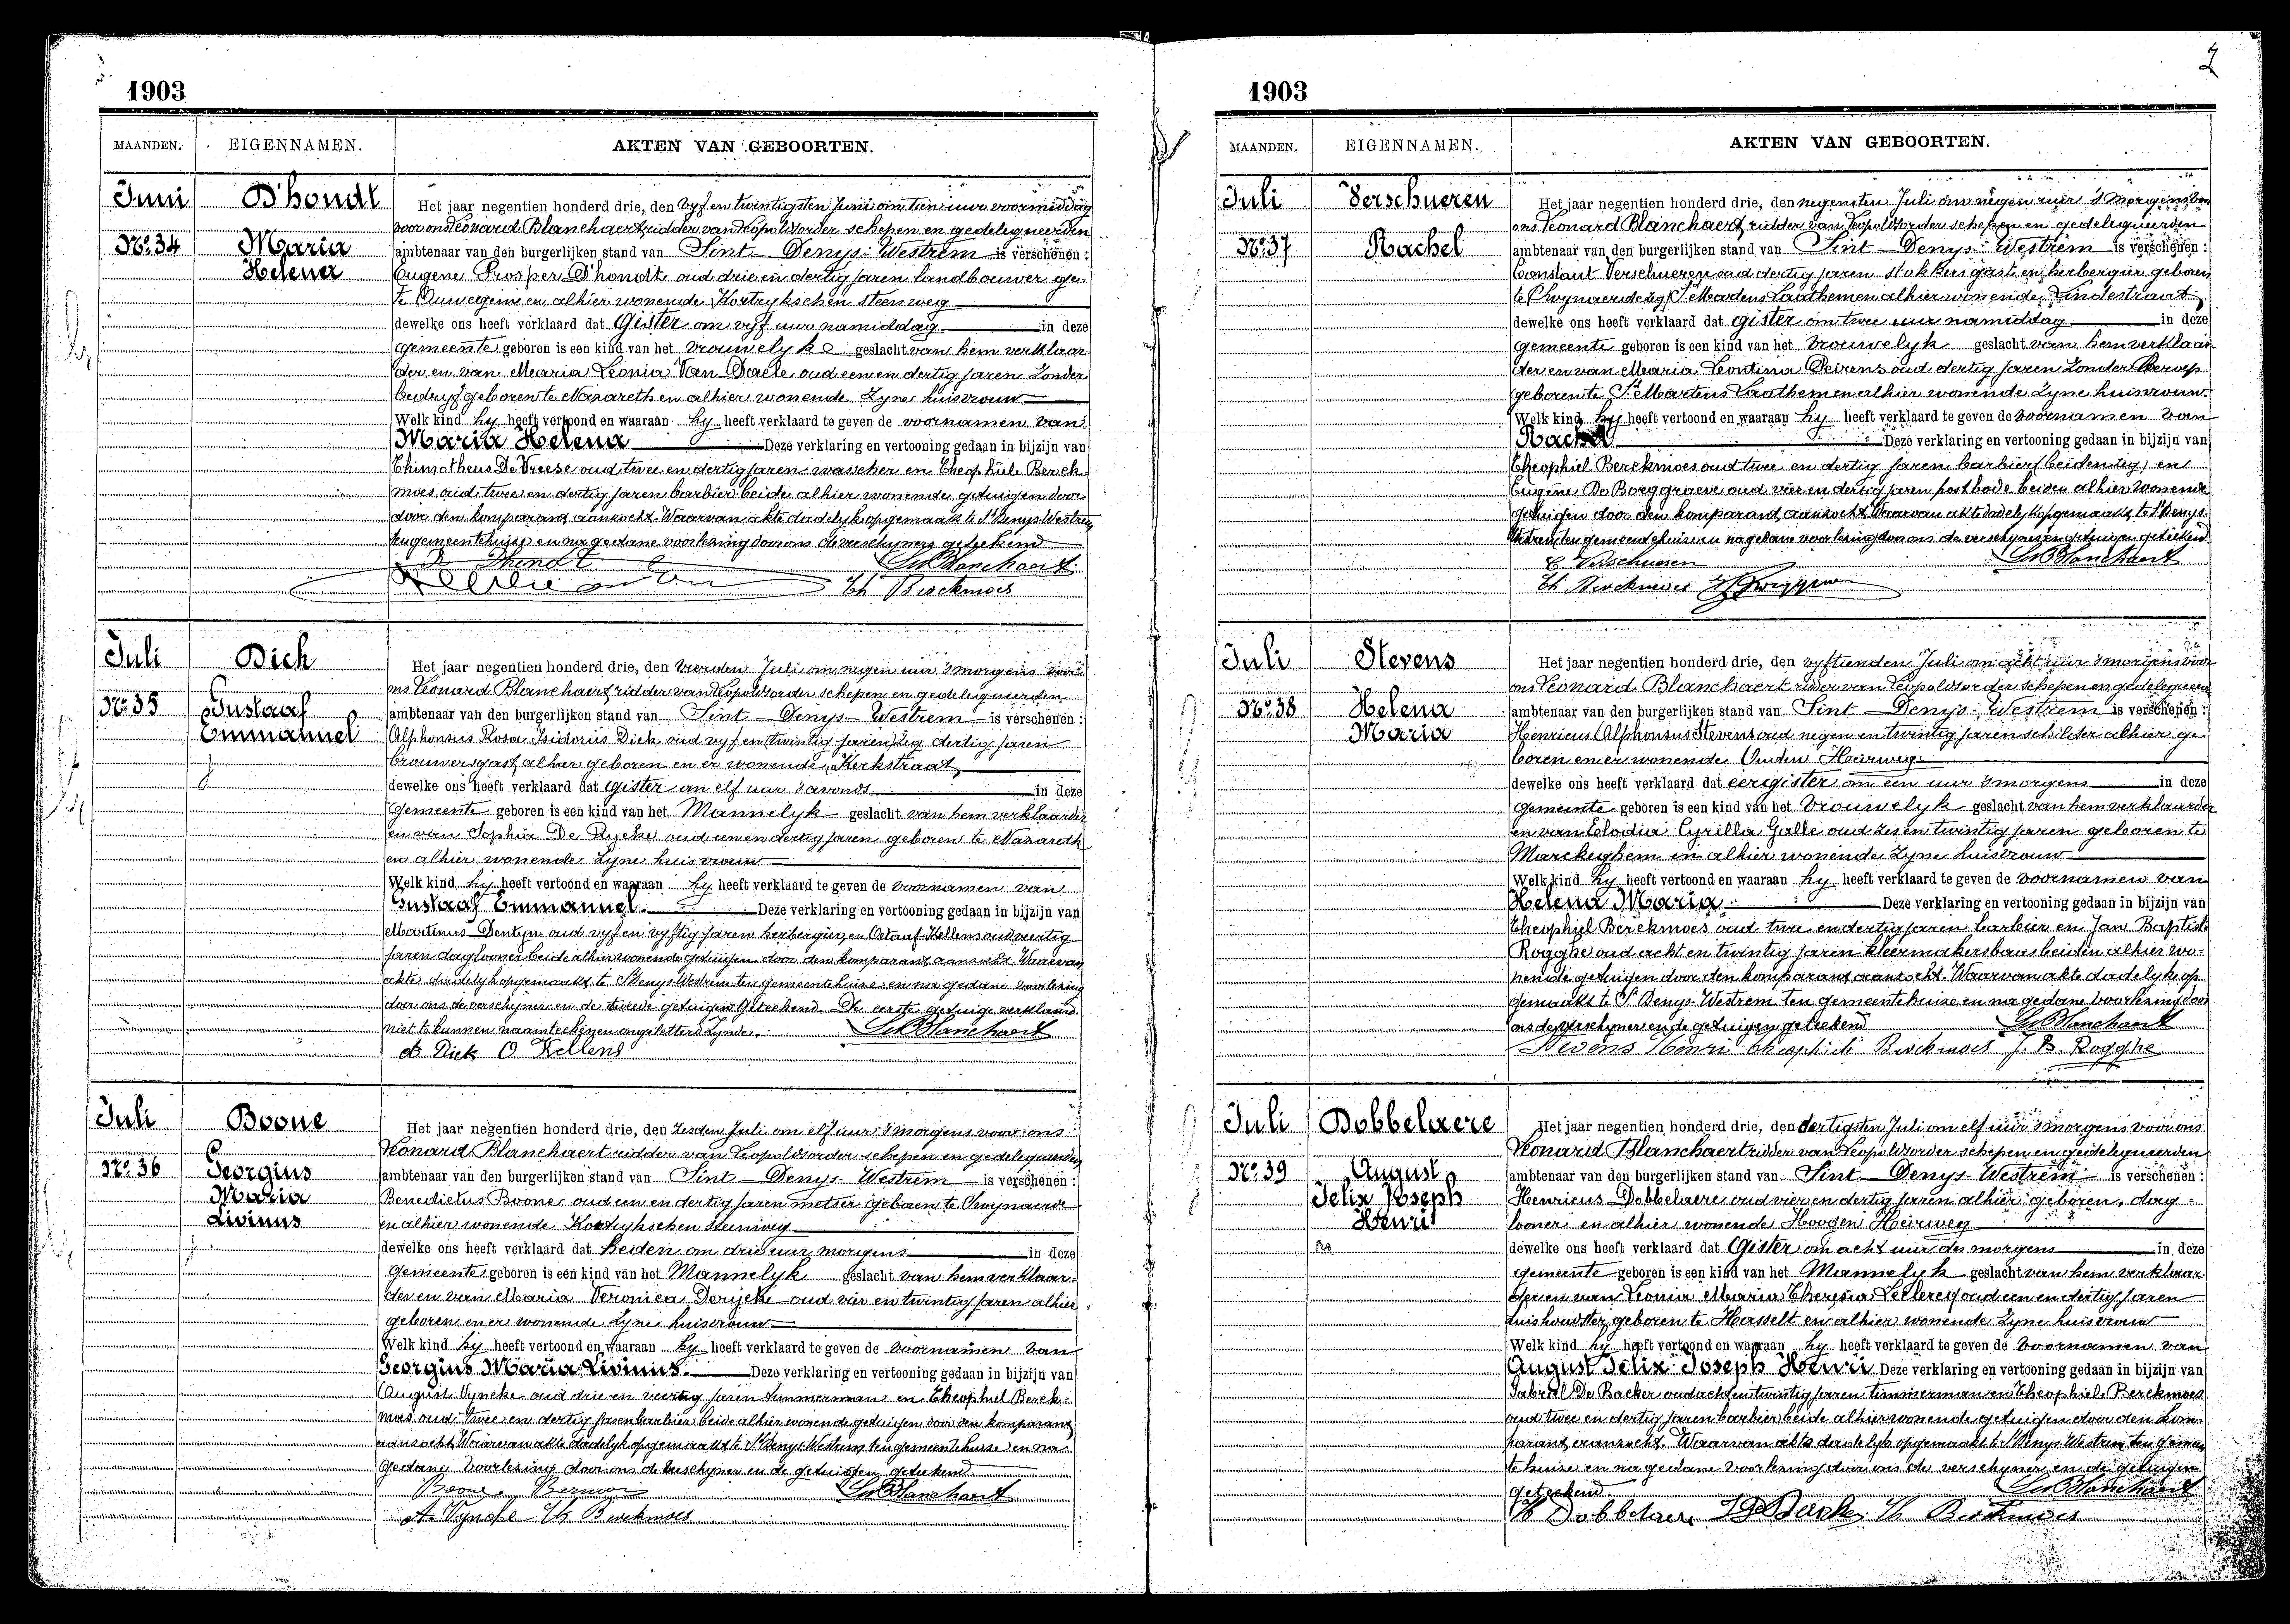 1903
MAANDEN. EIGENNAMEN. AKTEN VAN GEBOORTEN.
Juni D'hondt
Het jaar negentien honderd drie, den vyf en twintigsten Juni om tien uur voormiddag
voor ons Leonard Blanchaert ridder van Leopoldsorder schepen en gedelegueerden
No. 34 Maria ambtenaar van den burgerlijken stand van Sint Denys-Westrem is verschenen :
Helena Eugene Prosper D'hondt oud drie en dertig jaren landbouwer ge-
te en alhier wonende Kortrykschen steenweg
dewelke ons heeft verklaard dat Gister om vyf uur namiddag in deze
gemeente geboren is een kind van het vrouwelyk geslacht van hem verklaar
der en van Maria Leonia Van Daele oud een en dertig jaren zonder
bedryf geboren te Nazareth en alhier wonende zyne huisvrouw
Welk kind hy heeft vertoond en waaraan hy heeft verklaard te geven de voornamen van
Maria Helena Deze verklaring en vertooning gedaan in bijzijn van
Thimotheus De Vreese oud twee en dertig jaren wasscher en Theophiele Berck-
moes oud twee en dertig jaren barbier beide alhier wonende getuigen door
door den komparant aanzocht. Waarvan akte dadelyk opgemaakt te St Denys-Westrem
ten gemeentehuize en na gedane voorlezing door ons de verschyners geteekend
Dhondt Le Blanchaert
Th Berckmoes
Juli Dick
Het jaar negentien honderd drie, den vierden Juli om negen uur 's morgens voor
ons Leonard Blanchaert ridder van Leopoldsorder schepen en gedelegueerden
No. 35 Gustaaf ambtenaar van den burgerlijken stand van Sint Denys-Westrem is verschenen :
Emmanuel Alphonsus Rosa Isidorus Dick oud vyf en (twintig jaren) zig dertig jaren
brouwersgast alhier geboren en er wonende Kerkstraat
dewelke ons heeft verklaard dat Gister om elf uur 's avonds in deze
gemeente geboren is een kind van het Mannelyk geslacht van hem verklaarder
en van Sophia De Rycke oud een en dertig jaren geboren te Nazareth
en alhier wonende zyne huisvrouw
Welk kind hy heeft vertoond en waaraan hy heeft verklaard te geven de voornamen van
Gustaaf Emmanuel Deze verklaring en vertooning gedaan in bijzijn van
Martinus Dentyn oud vyf en vyftig jaren herbergier, en Octaaf Kellens oud veertig
jaren daglooner beide alhier wonende getuigen door den komparant aanzocht. Waarvan
akte dadelyk opgemaakt te St Denys-Westrem ten gemeentehuize en na gedane voorlezing
door ons de verschyner en de tweede getuigen geteekend De eerste getuige verklaard
niet te kunnen naamteekenen ongeletterd zynde. Le Blanchaert
A Dick O Kellens
Juli Boone
Het jaar negentien honderd drie, den zesden Juli om elf uur 's morgens voor ons
Leonard Blanchaert ridder van Leopoldsorder schepen en gedelegueerden
No. 36 Georgius ambtenaar van den burgerlijken stand van Sint Denys-Westrem is verschenen :
Maria Benedictus Boone oud een en dertig jaren metser geboren te Zwynaarde
Livinus en alhier wonende Kortrykschen steenweg
dewelke ons heeft verklaard dat heden om drie uur morgens in deze
gemeente geboren is een kind van het Mannelyk geslacht van hem verklaar-
der en van Maria Veronica Derycke oud vier en twintig jaren alhier
geboren en er wonende zyne huisvrouw
Welk kind hy heeft vertoond en waaraan hy heeft verklaard te geven de voornamen van
Georgius Maria Livinus. Deze verklaring en vertooning gedaan in bijzijn van
August Vyncke oud drie en veertig jaren timmerman en Theophiel Berck-
moes oud twee en dertig jaren barbier beide alhier wonende getuigen door den komparant
aanzocht Waarvan akte dadelyk opgemaakt te St Denys Westrem ten gemeentehuise en na
gedane voorlezing door ons de verschyner en de getuigen geteekend
Boone Le Blanchaert
A. Vyncke Th Berckmoes
7
1903
MAANDEN. EIGENNAMEN. AKTEN VAN GEBOORTEN.
Juli Verschueren
Het jaar negentien honderd drie, den negensten Juli om negen uur 's morgens voor
ons Leonard Blanchaert ridder van Leopoldsorder schepen en gedelegueerden
No. 37 Rachel ambtenaar van den burgerlijken stand van Sint Denys-Westrem is verschenen :
Constant Verschueren oud dertig jaren stokkersgast en herbergier geboren
te St Martens Laathem en alhier wonende Lindestraat
dewelke ons heeft verklaard dat gister om twee uur namiddag in deze
gemeente geboren is een kind van het vrouwelyk geslacht van hem verklaar
der en van Maria Leontina Peirens oud dertig jaren zonder beroep
geboren te St Martens Laathem en alhier wonende zyne huisvrouw
Welk kind hy heeft vertoond en waaraan hy heeft verklaard te geven de voornamen van
Rachel Deze verklaring en vertooning gedaan in bijzijn van
Theophiel Berckmoes oud twee en dertig jaren barbier (beiden zig) en
Eugène De Borggraeve oud vier en dertig jaren postbode beiden alhier wonende
getuigen door den komparant aanzocht Waarvan akte dadelyk opgemaakt te St Denys-
Westrem ten gemeentehuize en na gedane voorlezing door ons de verschyner en getuigen geteekend
C Verschueren Le Blanchaert
Th Berckmoes
Juli Stevens
Het jaar negentien honderd drie, den vyftienden Juli om acht uur 's morgens voor
ons Leonard Blanchaert ridder van Leopoldsorder schepen en gedelegueerden
No. 38 Helena ambtenaar van den burgerlijken stand van Sint Denys-Westrem is verschenen :
Maria Henricus Alphonsus Stevens oud negen en twintig jaren schilder alhier ge-
boren en er wonende Ouden Heirweg
dewelke ons heeft verklaard dat eergister om een uur 's morgens in deze
gemeente geboren is een kind van het vrouwelyk geslacht van hem verklaarder
en van Elodia Cyrilla Galle oud zes en twintig jaren geboren te
Marckeghem en alhier wonende zyne huisvrouw
Welk kind hy heeft vertoond en waaraan hy heeft verklaard te geven de voornamen van
Helena Maria Deze verklaring en vertooning gedaan in bijzijn van
Theophiel Berckmoes oud twee en dertig jaren barbier en Jan Baptist
Rogghe oud acht en twintig jaren kleermakersbaas beiden alhier wo-
nende getuigen door den komparant aanzocht. Waarvan akte dadelyk op
gemaakt te St Denys-Westrem ten gemeentehuize en na gedane voorlezing door
ons de verschyner en de getuigen geteekend Le Blanchaert
Stevens Henri Theophiel Berckmoes J. B. Rogghe
Juli Dobbelaere
Het jaar negentien honderd drie, den dertigsten Juli om elf uur 's morgens voor ons
Leonard Blanchaert ridder van Leopoldsorder schepen en gedelegueerden
No. 39 August ambtenaar van den burgerlijken stand van Sint Denys-Westrem is verschenen :
Felix Joseph Henricus Dobbelaere oud vier en dertig jaren alhier geboren, dag-
Henri looner en alhier wonende Hoogen Heirweg
dewelke ons heeft verklaard dat Gister om acht uur des morgens in deze
gemeente geboren is een kind van het Mannelyk geslacht van hem verklaar-
der en van Leonia Maria Theresia Leclercq oud een en dertig jaren
huishoudster geboren te Hasselt en alhier wonende zyne huisvrouw
Welk kind hy heeft vertoond en waaraan hy heeft verklaard te geven de voornamen van
August Felix Joseph Henri Deze verklaring en vertooning gedaan in bijzijn van
Gabriel De Backer oud acht en twintig jaren timmerman en Theophiele Berckmoes
oud twee en dertig jaren barbier beide alhier wonende getuigen door den kom-
parant aanzocht. Waarvan akte dadelyk opgemaakt te St Denys Westrem ten gemeen
te huize en na gedane voorlezing door ons de verschyner en de getuigen
geteekend Le Blanchaert
H Dobbelaere G De Backer Th Berckmoes